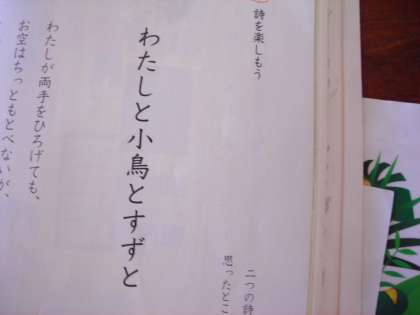 詩を楽しもう
二つの詩
思ったとこ
わたしと小鳥とすずと
わたしが両手をひろげても、
お空はちっともとべないが、